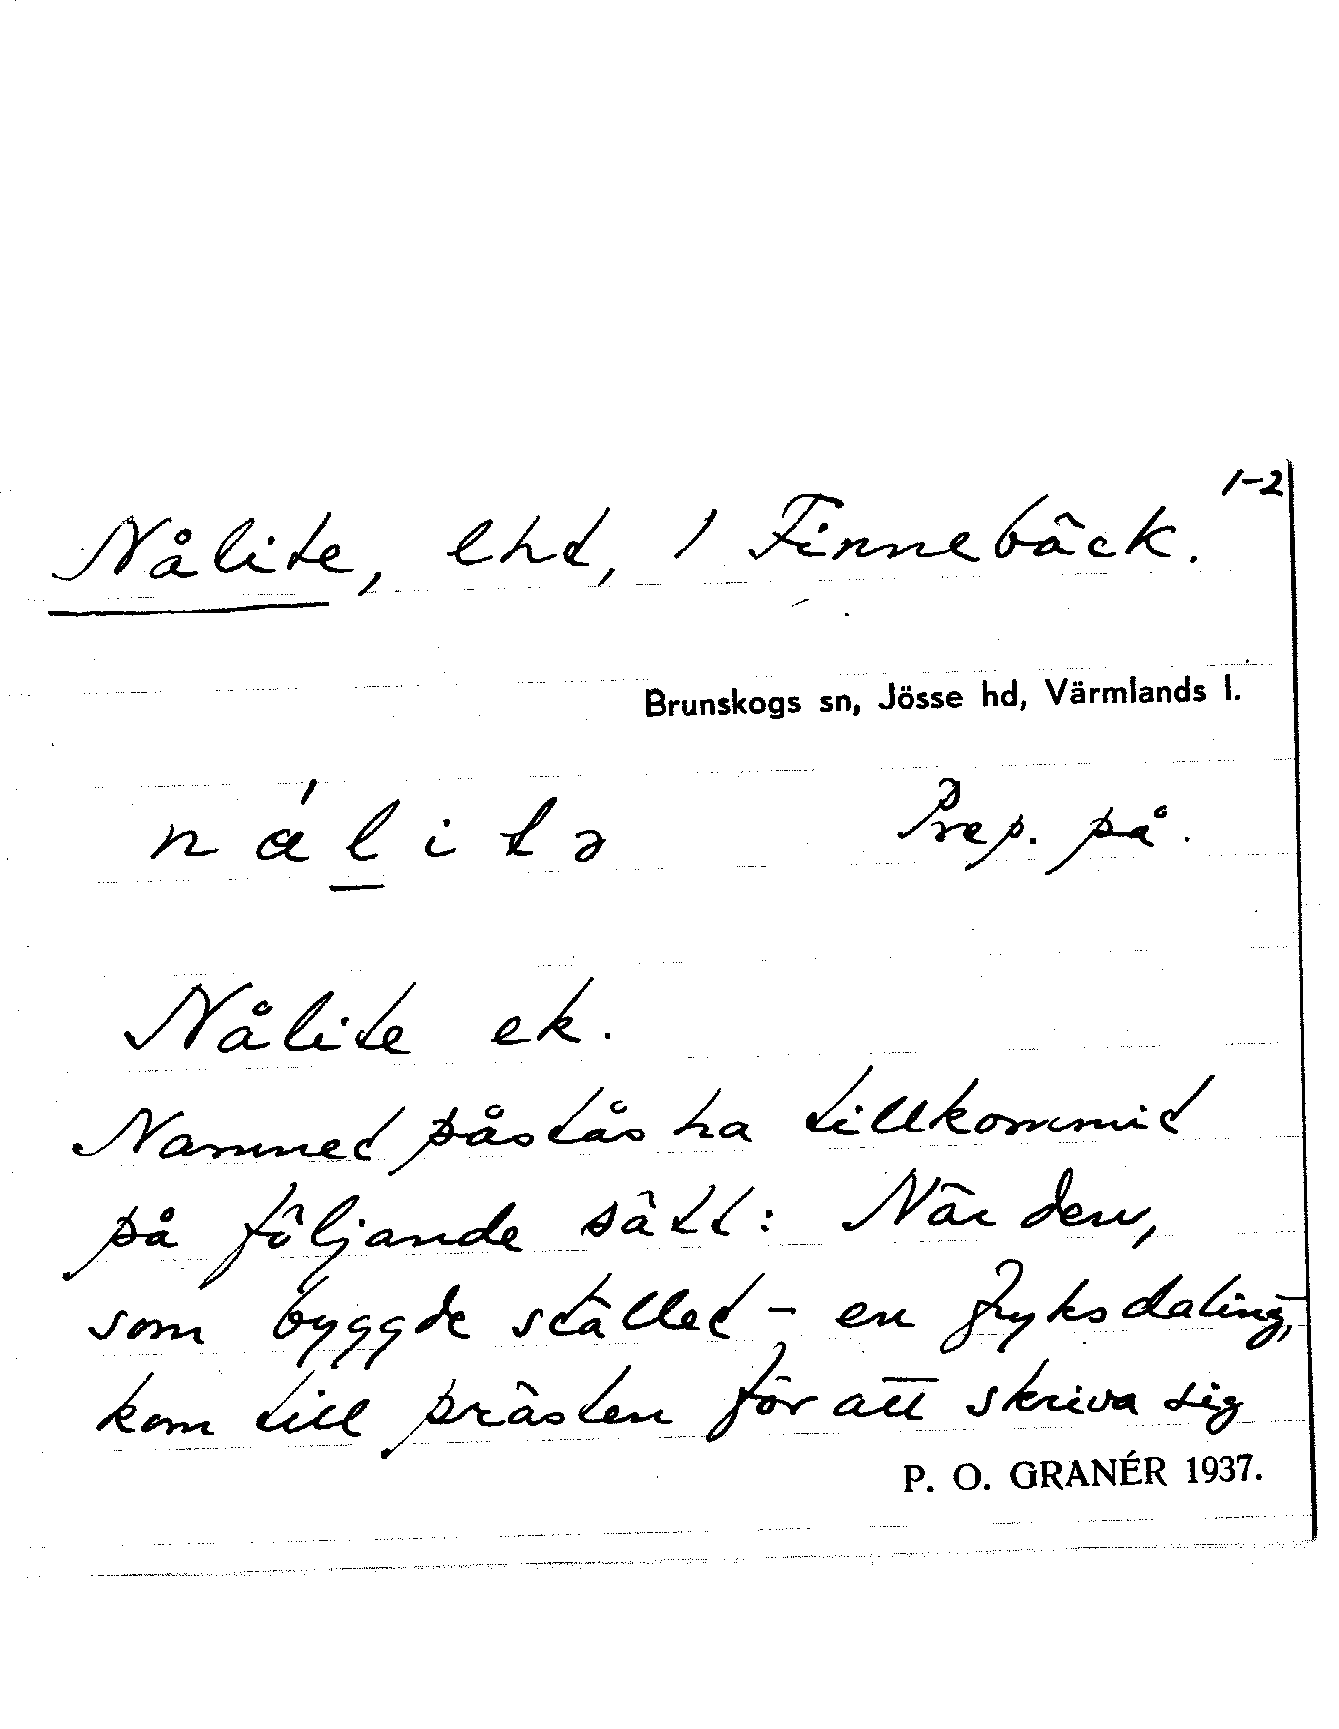 1-2
Nålite, lht, / Finnebäck.
Brunskogs sn, Jösse hd, Värmlands l.
nálitə Prep. på.
Nålite ek.
Namnet påstås ha tillkommit
på följande sätt: När den,
som byggde stället - en fryksdaling,
kom till prästen för att skriva sig
P. O. GRANÉR 1937.